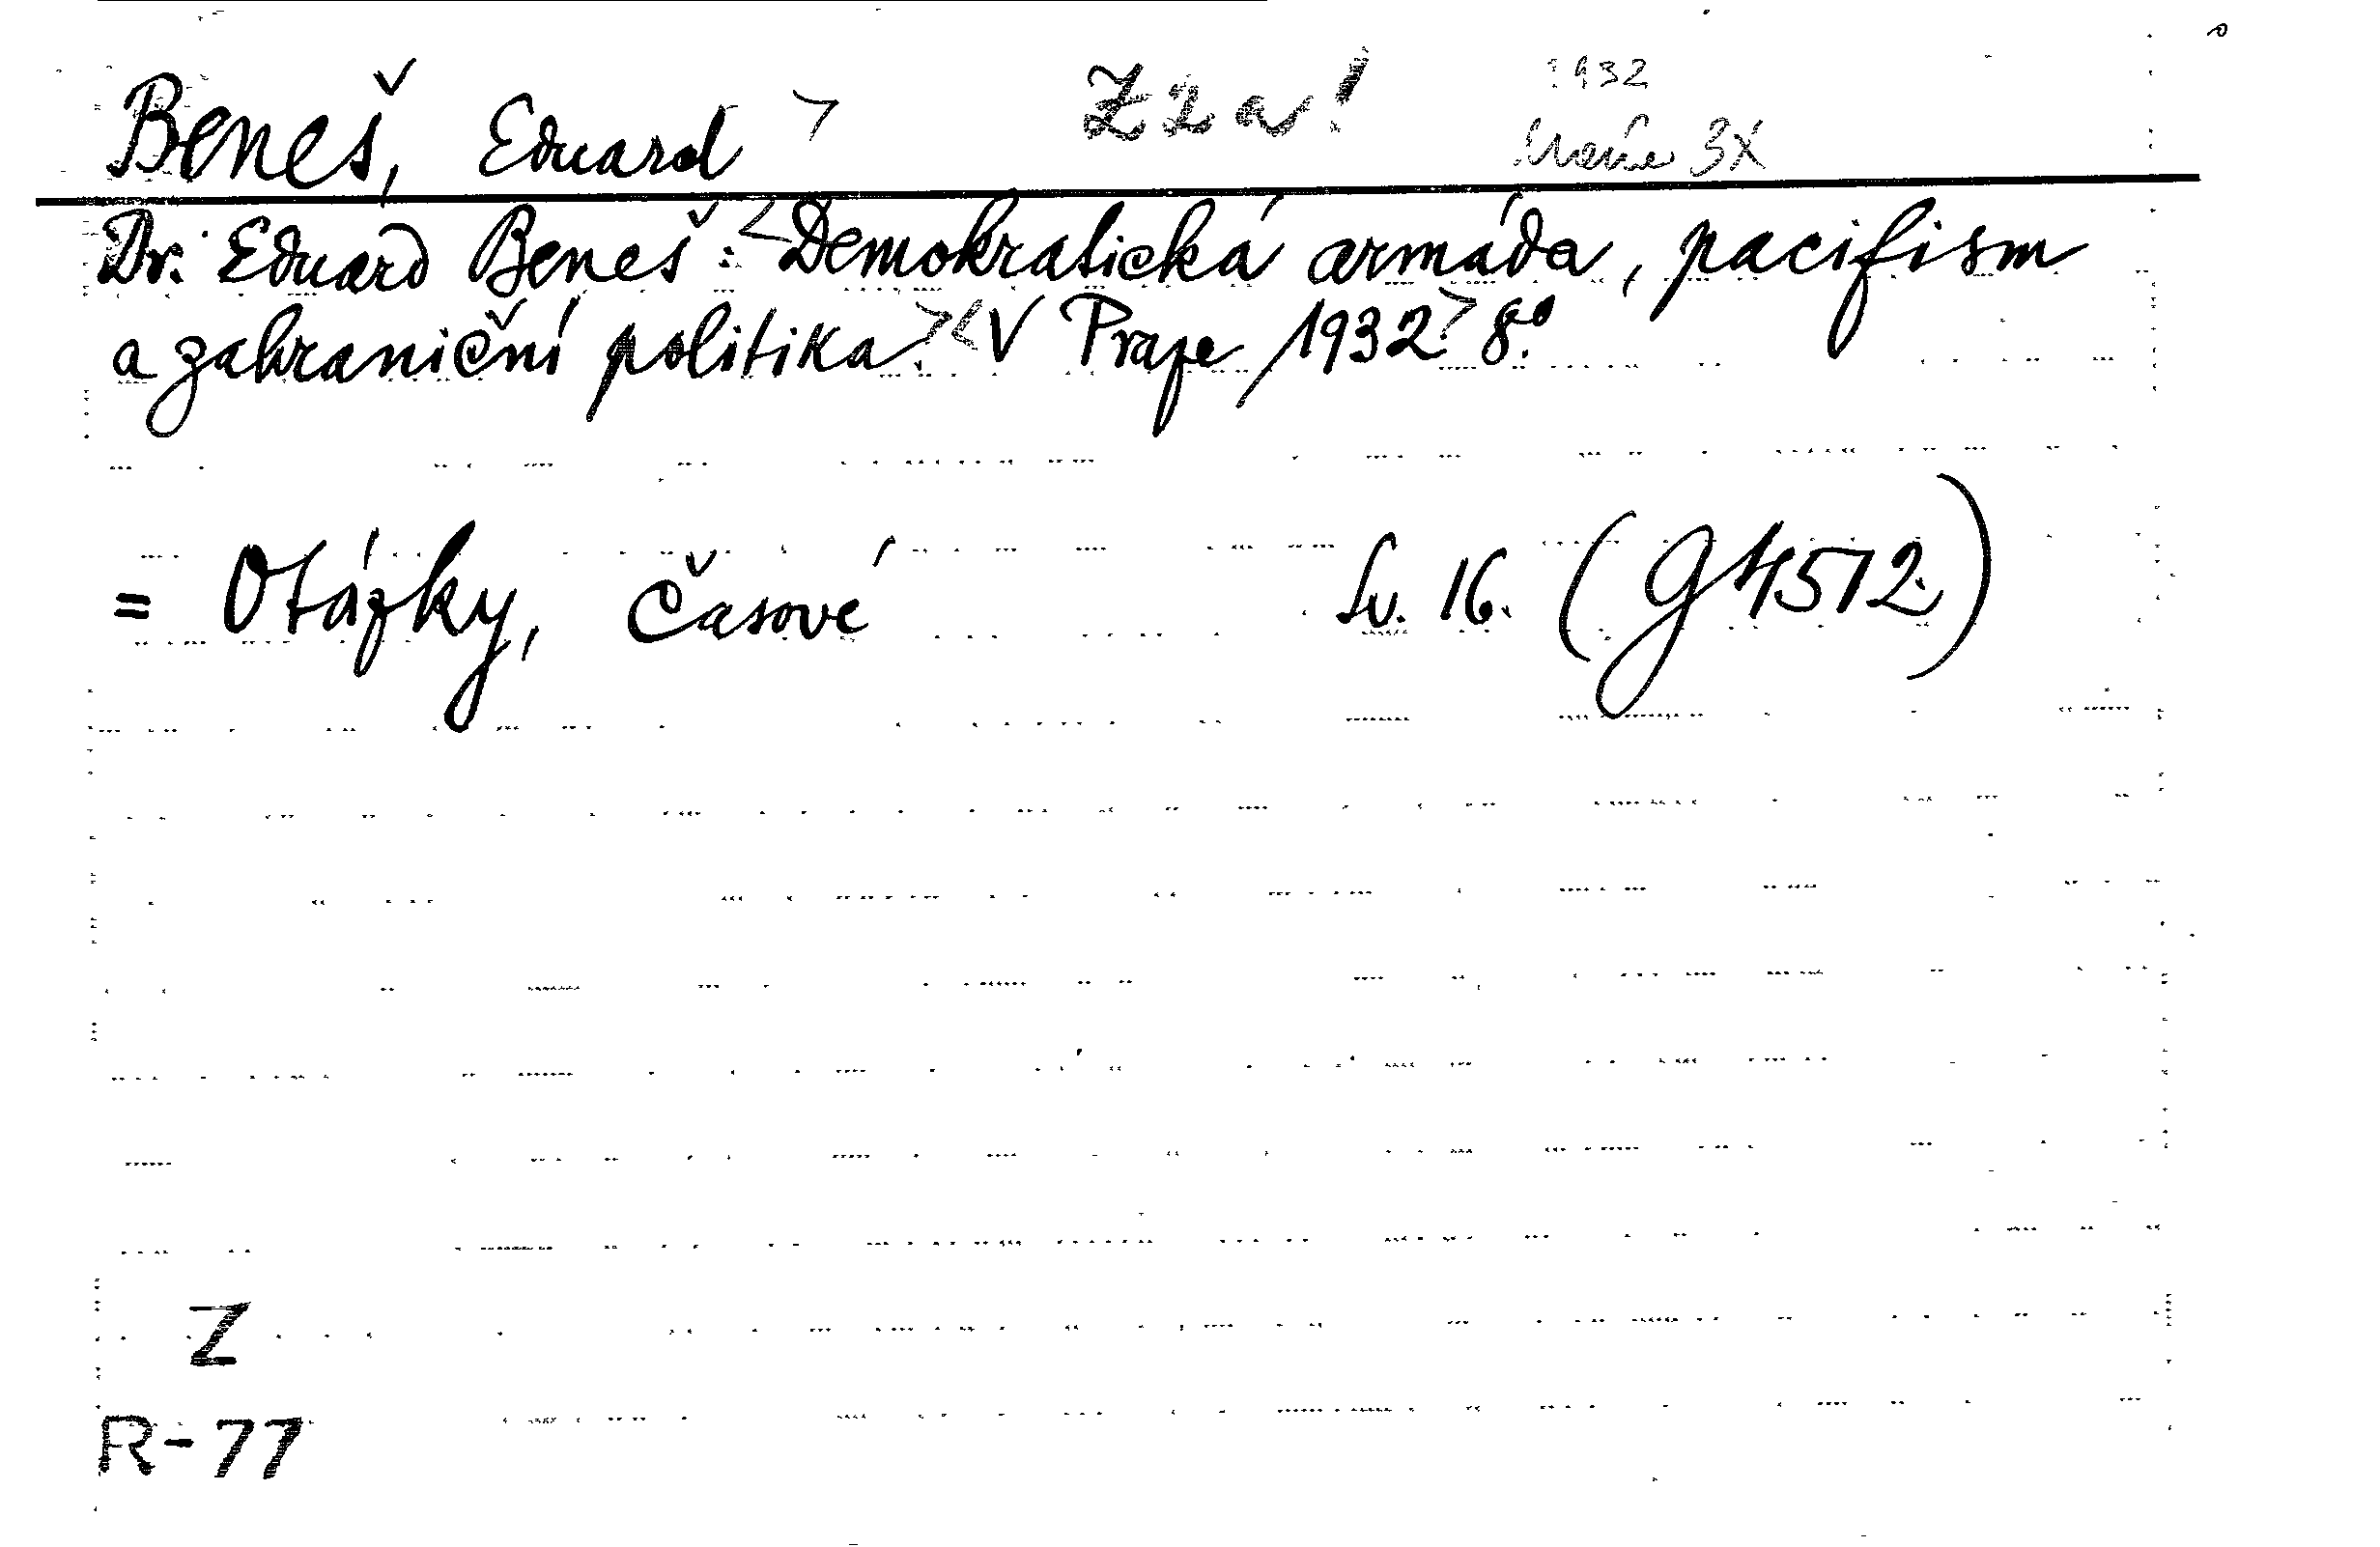 1932
Beneš, Eduard > Z 2 a ! 3x
Dr. Eduard Beneš: <Demokratická armáda, pacifism
a zahraniční politika.> <V Praze, 1932.> 8.°
= Otázky, časové Sv. 16. (G 4572.)
Z
R-77